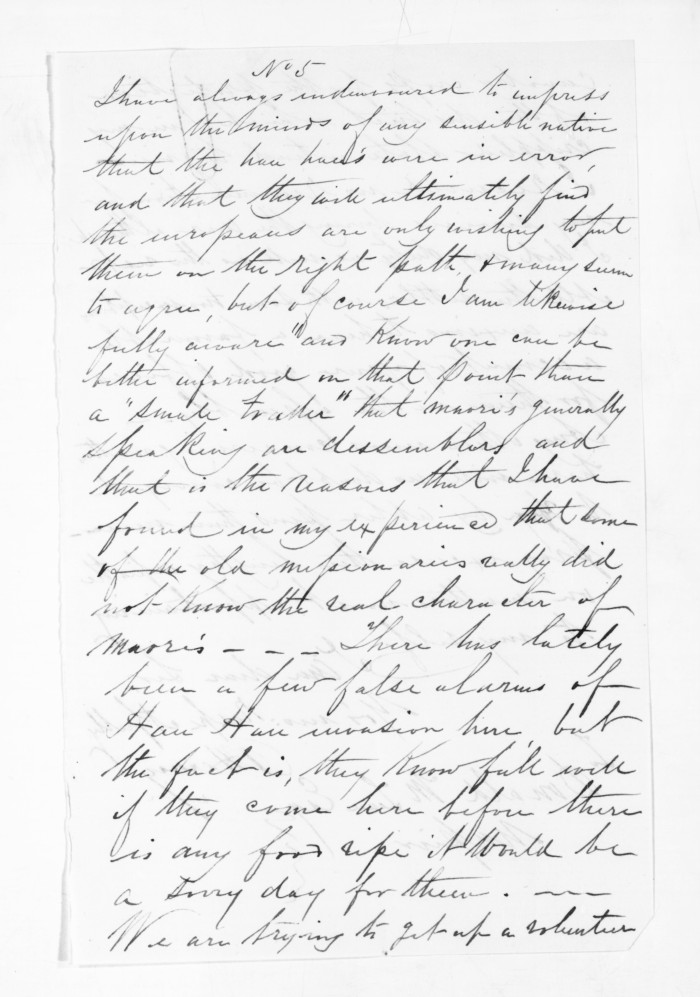 No 5
I have always endeavoured to impress
upon the minds of any sensible native
that the hau hau's were in error,
and that they will ultimately find
the europeans are only wishing to put
them on the right path, & many seem
to agree, but of course I am likewise
fully aware "and know one can be
better informed on that point than
a "smale trader" that maori's generally
speaking are dessemblers and
that is the reasons that I have
found in my experience that some
of the old missionaries really did
not know the real character of
maori's - - - There has lately
been a few false alarms of
Hau Hau invasion here, but
the fact is, they know full well
if they come here before there
is any food ripe it would be
a sorry day for them. - -
We are trying to get up a volunteer